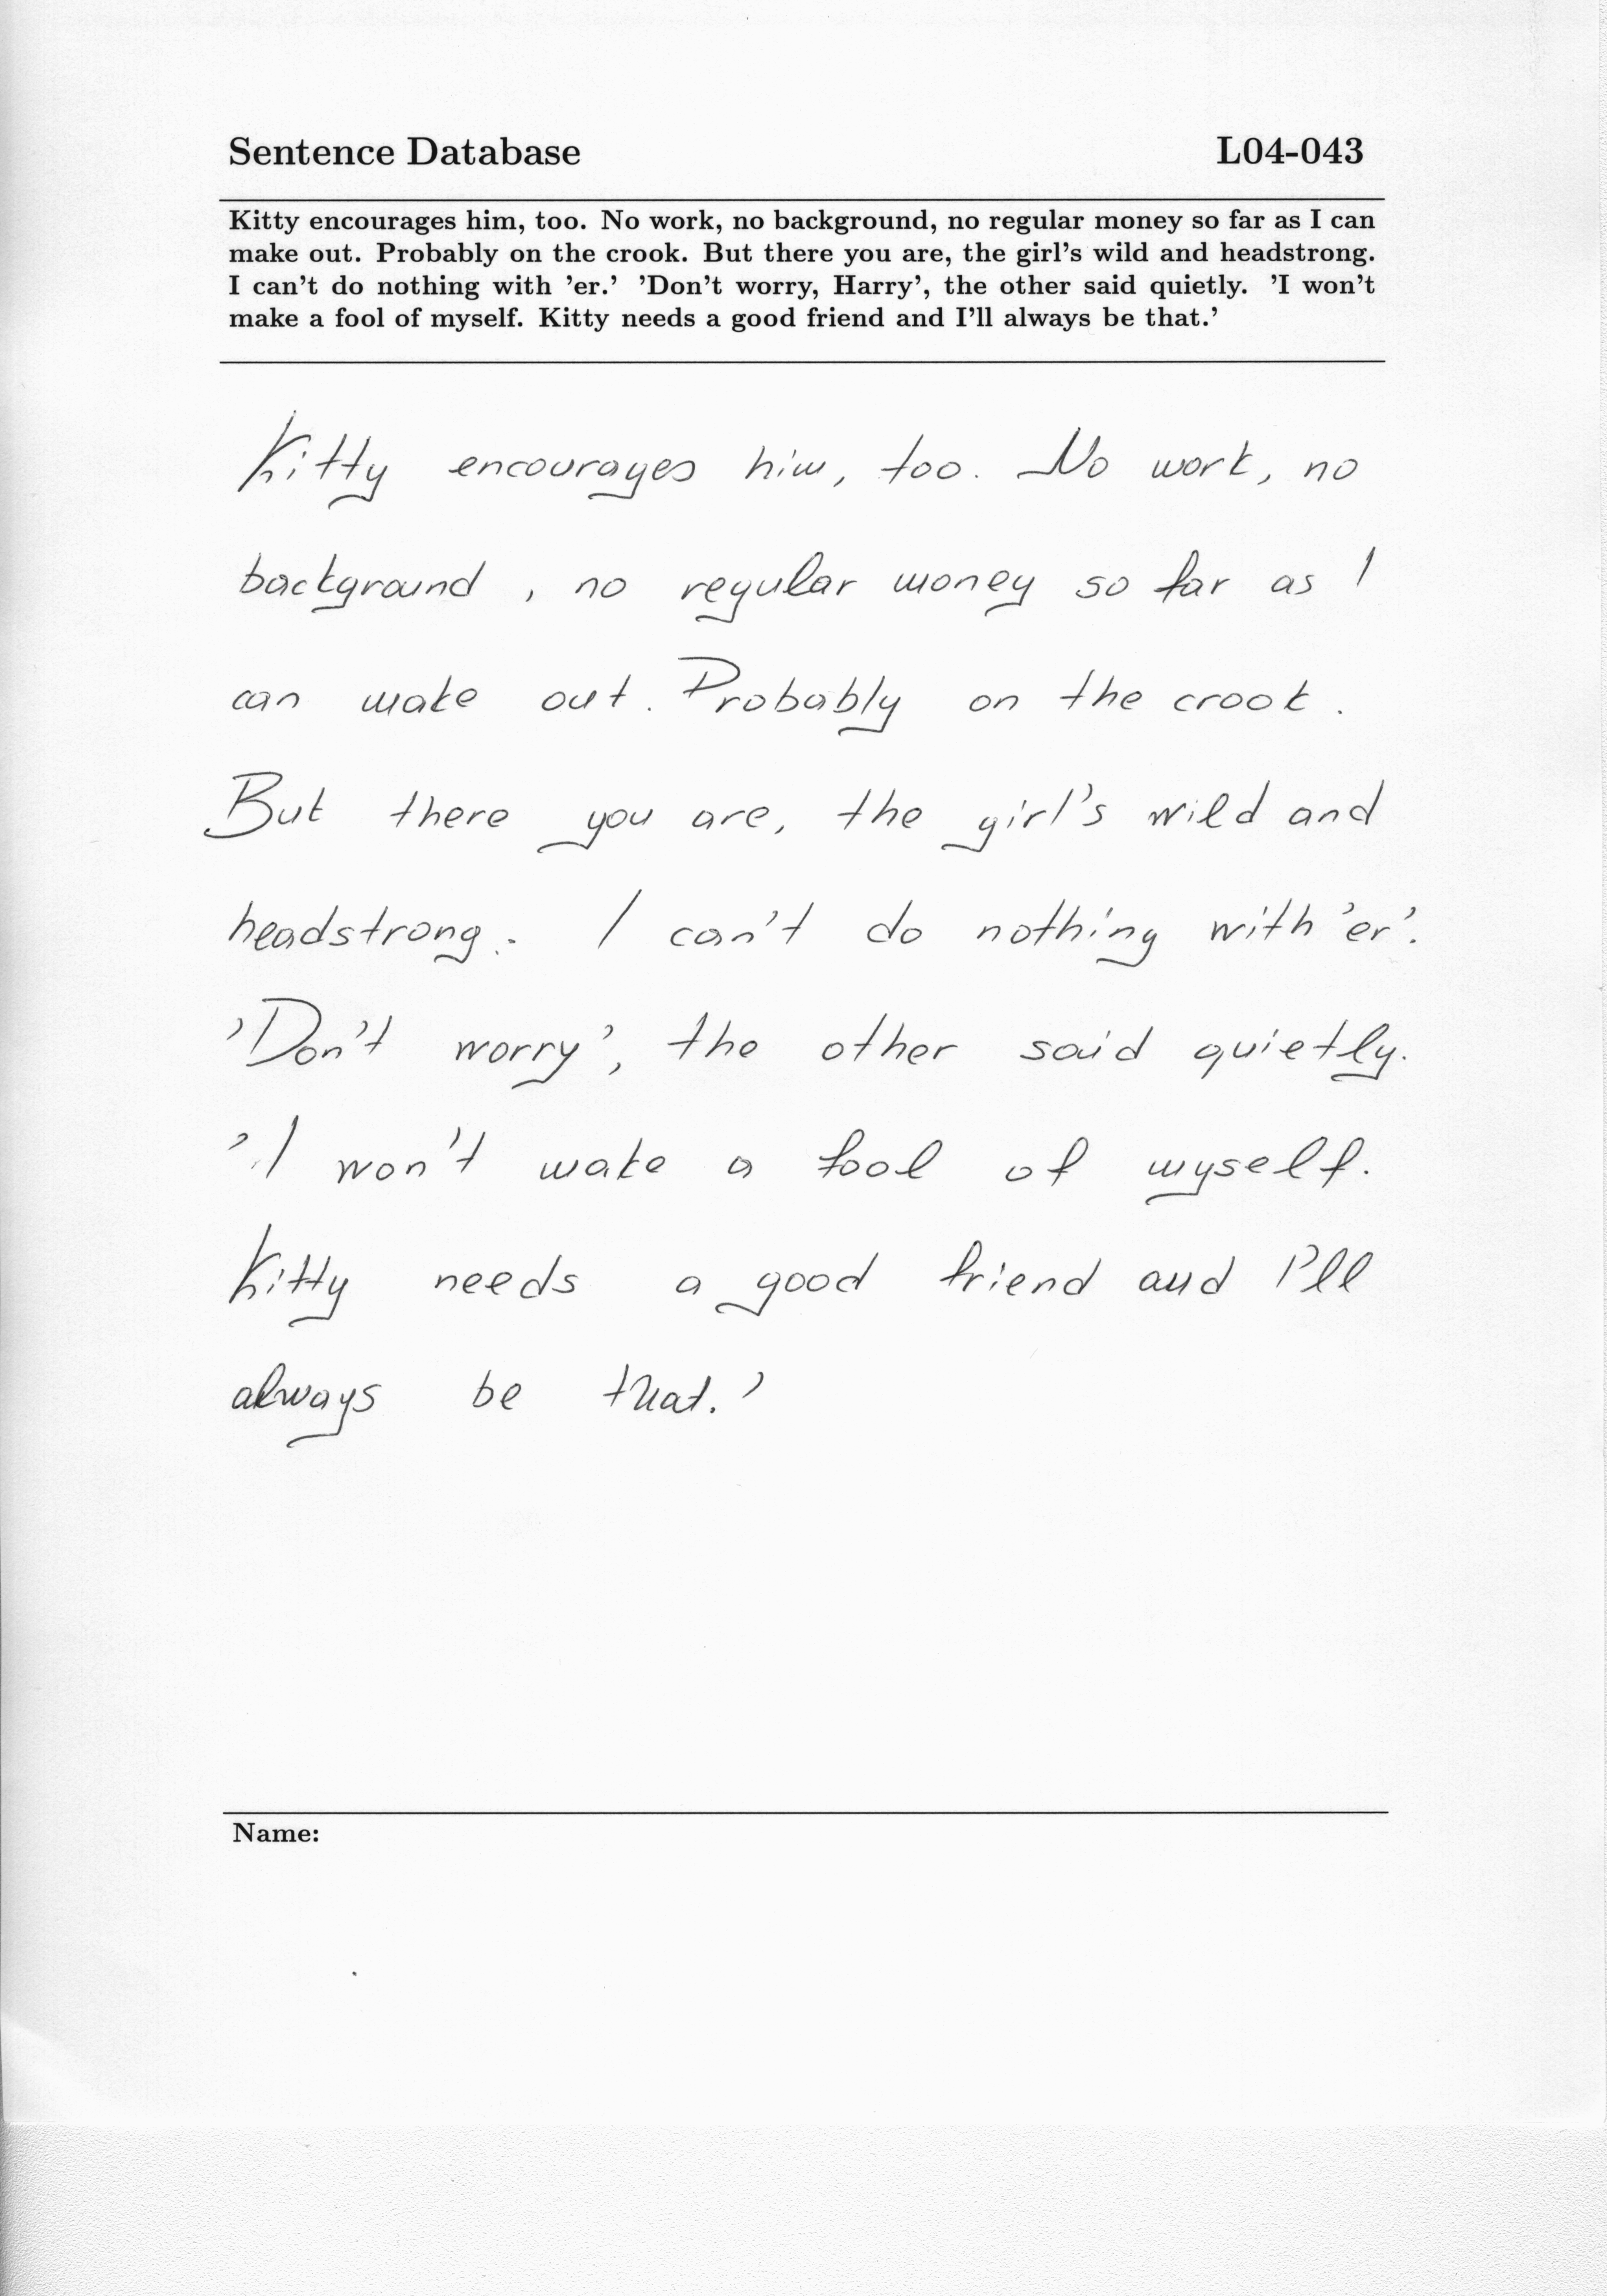 Sentence Database L04-043
Kitty encourages him, too. No work, no background, no regular money so far as I can
make out. Probably on the crook. But there you are, the girl's wild and headstrong.
I can't do nothing with 'er.' 'Don't worry, Harry', the other said quietly. 'I won't
make a fool of myself. Kitty needs a good friend and I'll always be that.'
Kitty encourages him, too. No work, no
background, no regular money so far as I
can make out. Probably on the crook.
But there you are, the girl's wild and
headstrong. I can't do nothing with 'er'.
'Don't worry', the other said quietly.
'I won't make a fool of myself.
Kitty needs a good friend and I'll
always be that.'
Name: